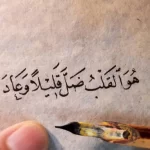 هُوَ القَلْبُ ضَلَّ قَلِيْلًا وَعَادَ